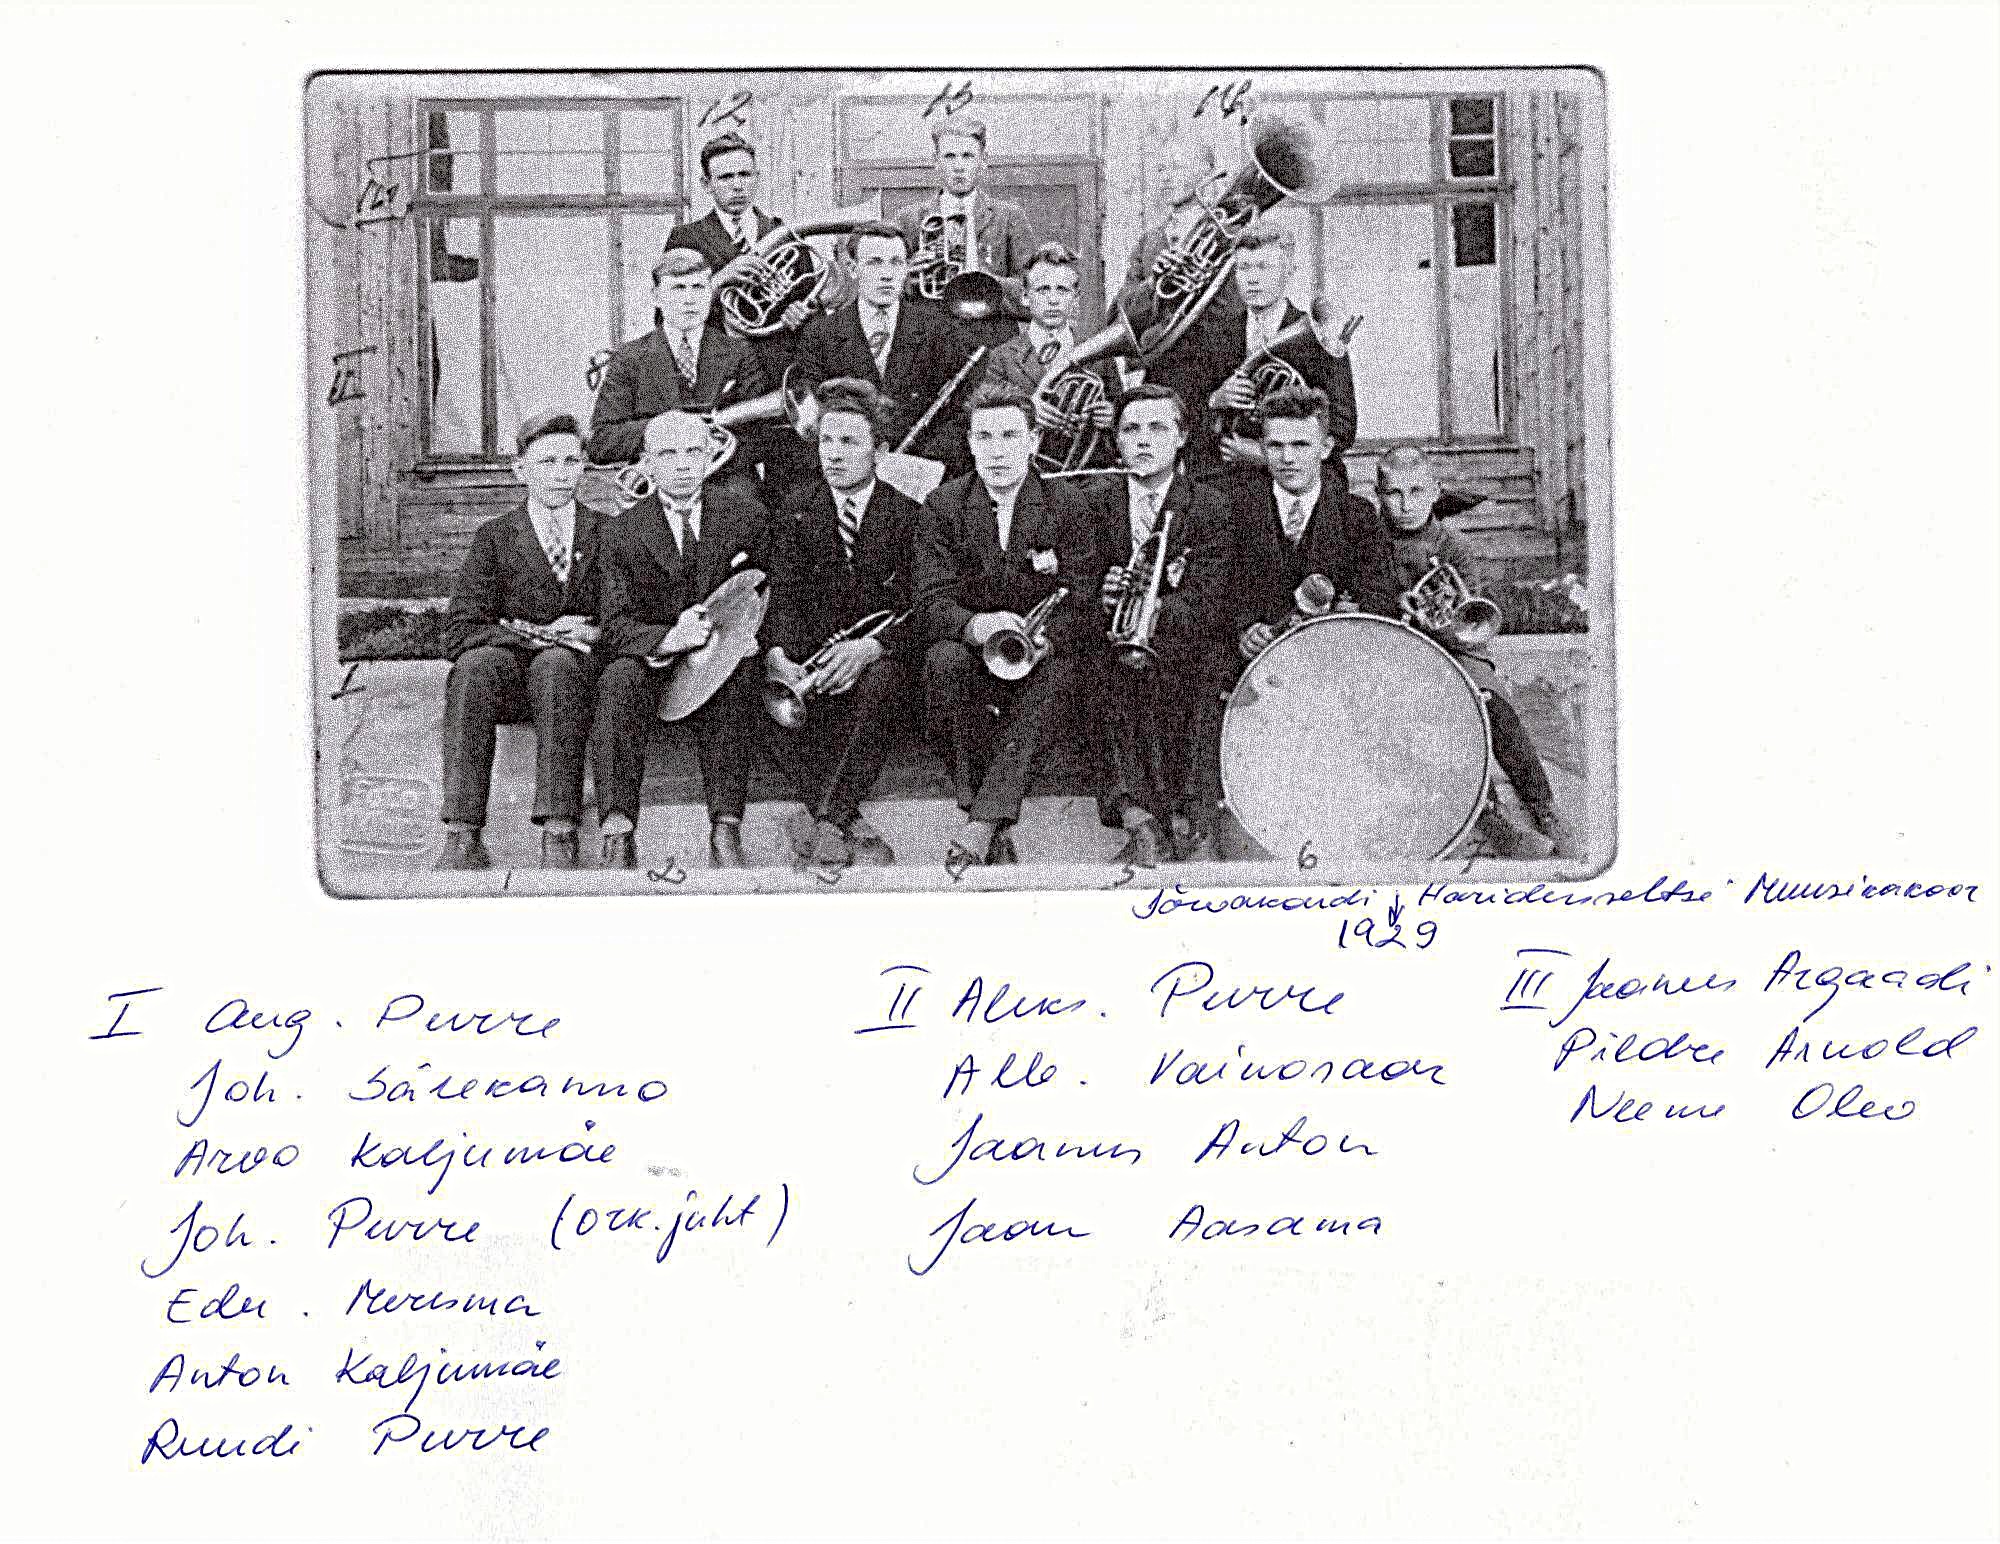 12 13 14
III
II 8 9 10 11
I
1 2 3 4 5 6 7
Järvakandi Haridusseltsi Muusikakoor
1929
I Aug. Purre
Joh. Särekanno
Arvo Kaljumäe
Joh. Purre (ork. juht)
Edu. Meusma
Anton Kaljumäe
Ruudi Purre
II Aleks. Purre
Alb. Vainosaar
Jaanus Anton
Jaan Aasama
III Jaanus Argaadi
Pildre Arnold
Neeme Oleo